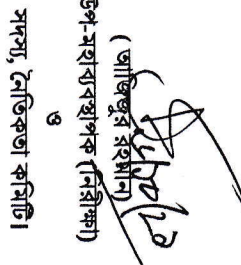 (আজিজুর রহমান)
উপ-মহাব্যবস্থাপক (নিরীক্ষা)
ও
সদস্য, নৈতিকতা কমিটি।